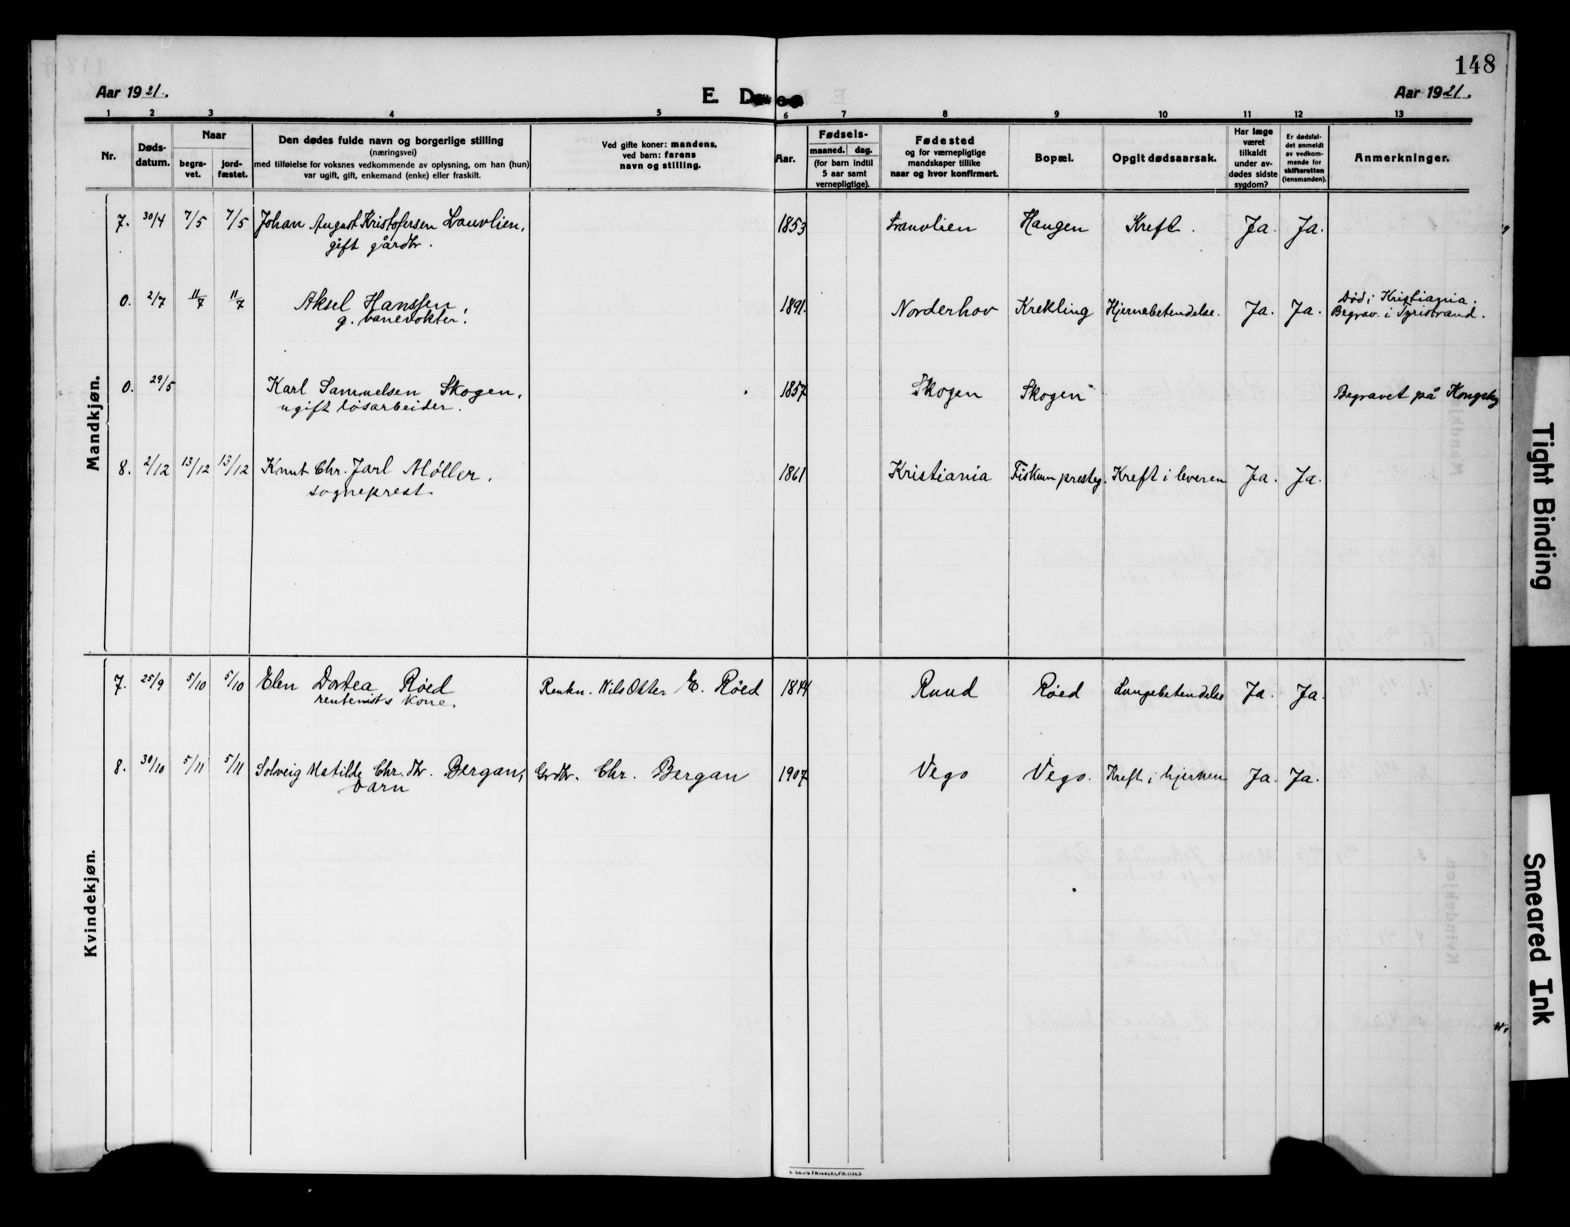 148
Aar 1921.
E. D
Aar 1921.
1 2 3 4 5 6 7 8 9 10 11 12 13
Nr.
Døds-
datum.
Naar
begra-
vet.
jord-
fæstet.
Den dødes fulde navn og borgerlige stilling
(næringsvei)
med tilføielse for voksnes vedkommende av oplysning, om han (hun)
var ugift, gift, enkemand (enke) eller fraskilt.
Ved gifte koner: mandens,
ved barn: farens
navn og stilling.
Aar.
Fødsels-
maaned. dag.
(for barn indtil
5 aar samt
vernepligtige).
Fødested
og for værnepligtige
mandskaper tillike
naar og hvor konfirmert.
Bopæl.
Opgit dødsaarsak.
Har læge
været
tilkaldt
under av-
dødes sidste
sygdom?
Er dødsfal-
det anmeldt
av vedkom-
mende for
skifteretten
(lensmanden).
Anmerkninger.
Mandkjøn.
7. 30/4 7/5 7/5 Johan August Kristofersen Lauvlien, 1853 Haugen Kreft. Ja. Ja.
gift gårdbr.
0. 2/7 11/7 11/7 Aksel Hanssen 1891. Norderhov Krekling Hjernebetendelse. Ja. Ja. Død i Kristiania.
g. banevokter. Begrav. i Tyristrand.
0. 29/5 Karl Samuelsen Skogen, 1857 Skogen Skogen Begravet på Kongsbg
ugift løsarbeider.
8. 2/12 13/12 13/12 Knut Chr. Jarl Møller, 1861 Kristiania Fiskum presteg. Kreft i leveren Ja. Ja.
sogneprest.
Kvindekjøn.
7. 25/9 5/10 5/10 Elen Dortea Røed Rentn. Nils Otter E. Røed 1844 Ruud Røed Lungebetendelse Ja. Ja.
rentenist's kone.
8. 30/10 5/11 5/11 Solveig Matilde Chr. dtr. Bergan, Grdbr. Chr. Bergan 1907 Vego Vego. Kreft i hjernen Ja. Ja.
barn
Tight Binding
Smeared Ink